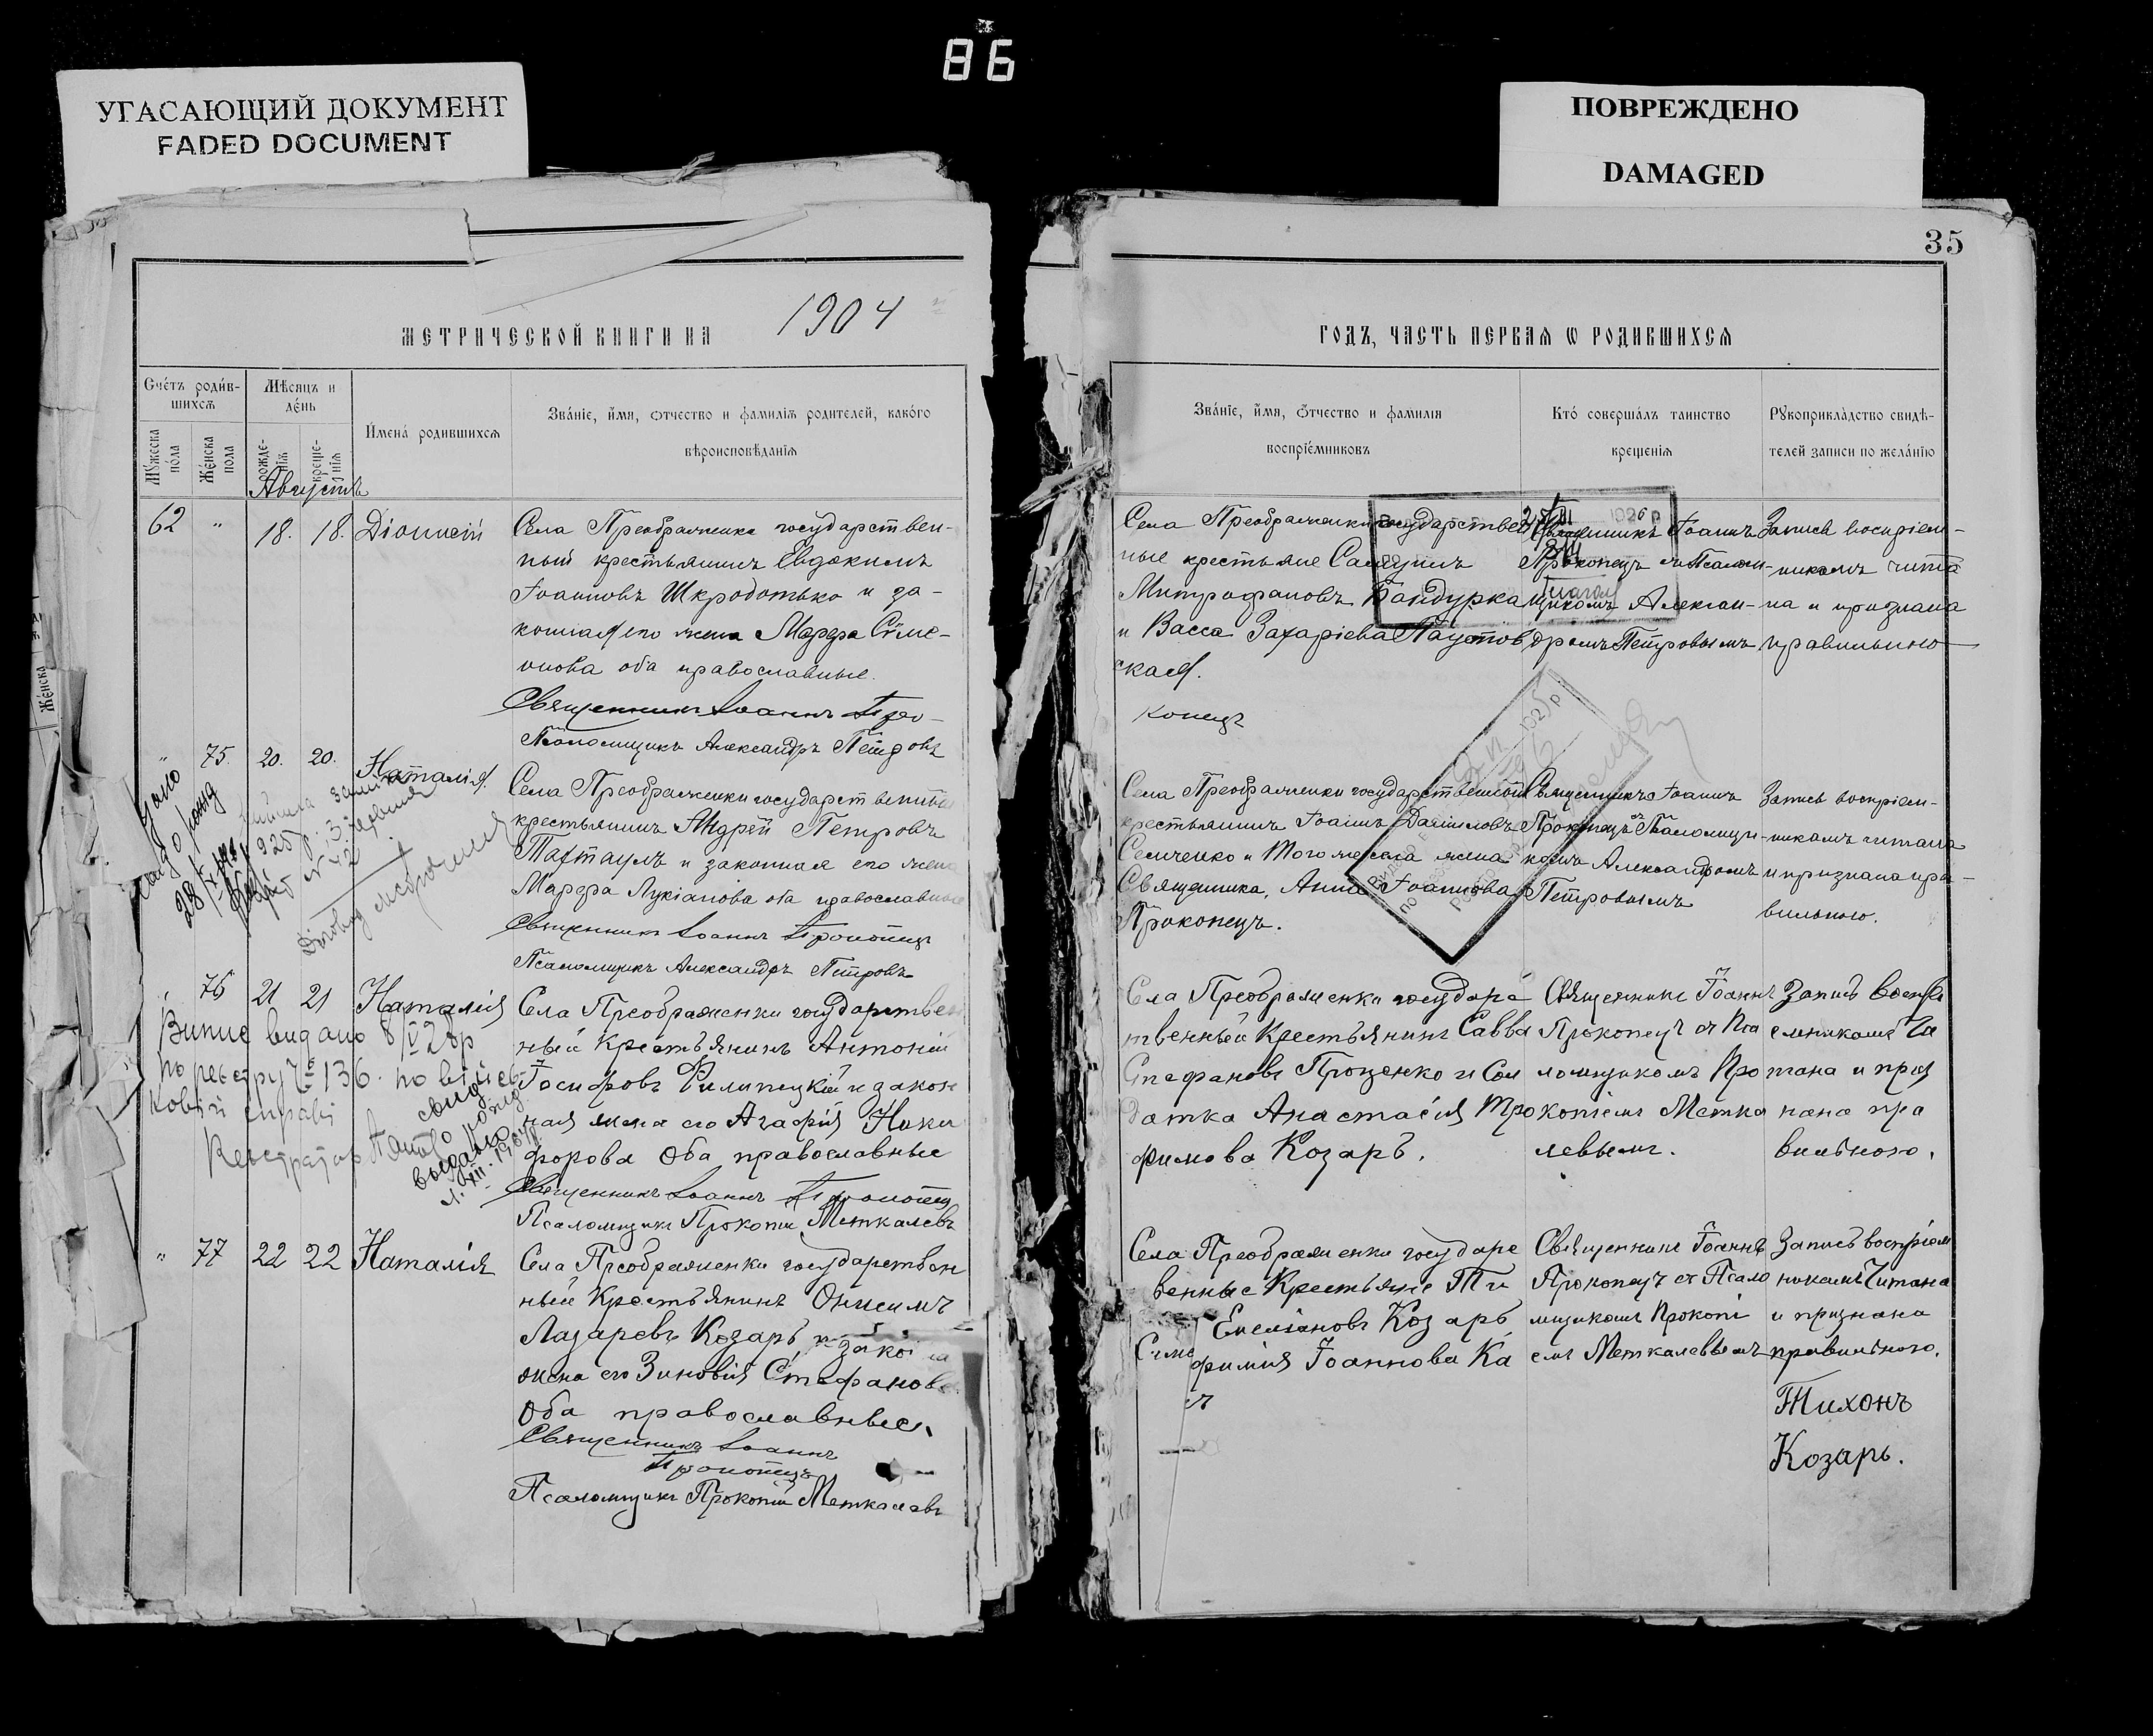 86
УГАСАЮЩИЙ ДОКУМЕНТ
FADED DOCUMENT
ПОВРЕЖДЕНО
DAMAGED
35
МЕТРИЧЕСКОЙ КНИГИ НА 1904
ГОДЪ, ЧАСТЬ ПЕРВАѦ Ѡ РОДИВШИХСѦ
Счетъ родив-
шихсѧ
Мѣсяцъ и
день
Мужеска
пола
Женска
пола
рожде-
нїѧ
креще-
нїѧ
Имена родившихсѧ
Званїе, имя, отчество и фамилїѧ родителей, какого
вѣроисповѣданїѧ
Званїе, имя, отчество и фамилїя
воспрїемниковъ
Кто совершалъ таинство
крещенїя
Рукоприкладство свидѣ-
телей записи по желанїю
Августъ
62 " 18. 18. Діонисій
Села Преображенки государствен-
ный крестьянинъ Евдокимъ
Іоанновъ Шкродотько и за-
конная его жена Марфа Симе-
онова оба православные.
Священникъ Іоаннъ Про-
Псаломщикъ Александръ Петровъ
Села Преображенки государствен
ные крестьяне Самуилъ
Митрофановъ Бандурка
и Васса Захаріева Паутов
ская.
копецъ
Священникъ Іоаннъ
Прокопецъ съ Псалом-
щикомъ Алексан-
дромъ Петровымъ
Запись воспріем-
никамъ чита
на и признана
правильною
" 75. 20. 20. Наталія.
Села Преображенки государственный
крестьянинъ Андрей Петровъ
Тахтаулъ и законная его жена
Марфа Лукіанова оба православные
Священникъ Іоаннъ Прокопецъ
Псаломщикъ Александръ Петровъ
Села Преображенки государственный
крестьянинъ Іоаннъ Данииловъ
Семченко и Того же села жена
Священника, Анна Іоаннова
Прокопецъ.
Священникъ Іоаннъ
Прокопецъ съ Псаломщи-
комъ Александромъ
Петровымъ
Запись воспріем-
никамъ читана
и признана пра-
вильною.
76 21 21 Наталія
Села Преображенки государствен
ный Крестьянинъ Антоній
Іосифовъ Филипецкій и закон
ная жена его Агафія Ники
форова Оба православные
Священникъ Іоаннъ Прокопец
Псаломщикъ Прокопій Меткалевъ
Села Преображенки государс
твенный Крестьянинъ Савва
Стефановъ Проценко и Сол
датка Анастасія Тро
фимова Козаръ.
Священникъ Іоаннъ
Прокопецъ съ Пса
ломщикомъ Про
копіемъ Метка
левымъ.
Запись воспрі
емникамъ Чи
тана и приз
нана пра
вильною.
Випис видано 8/V 28р
по реєстру № 136. по військ-
ковій справі
Реєстратор
" 77 22 22 Наталія
Села Преображенки государствен
ный Крестьянинъ Онисимъ
Лазаревъ Козаръ и закон
жена его Зиновія Стефанова
Оба православные.
Священникъ Іоаннъ
Прокопецъ
Псаломщикъ Прокопій Меткалевъ
Села Преображенки государс
венные Крестьяне Ти
Емеліановъ Козаръ
фимія Іоаннова Ка
Священникъ Іоаннъ
Прокопецъ съ Псало
мщикомъ Прокопі
емъ Меткалевымъ
Запись воспріем
никамъ Читана
и признана
правильною.
Тихонъ
Козарь.